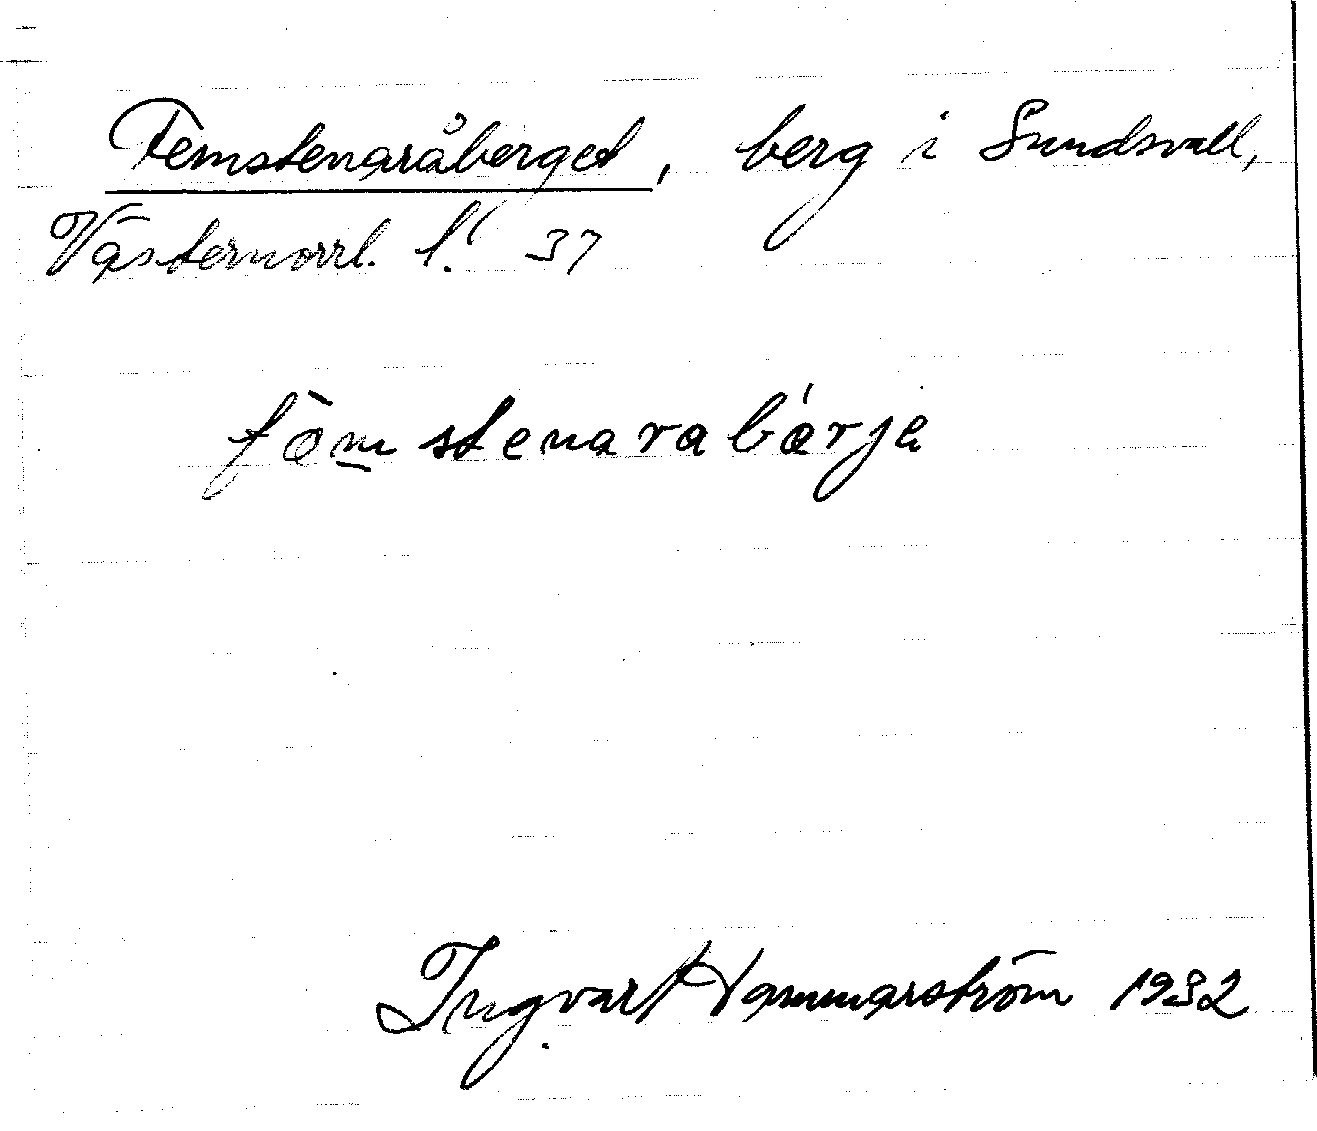 Femstenaråberget, berg i Sundsvall,
Västernorrl. l. 37
fœ̀m̱stenarabœ́rjɐ
Ingvar Hammarström 1932